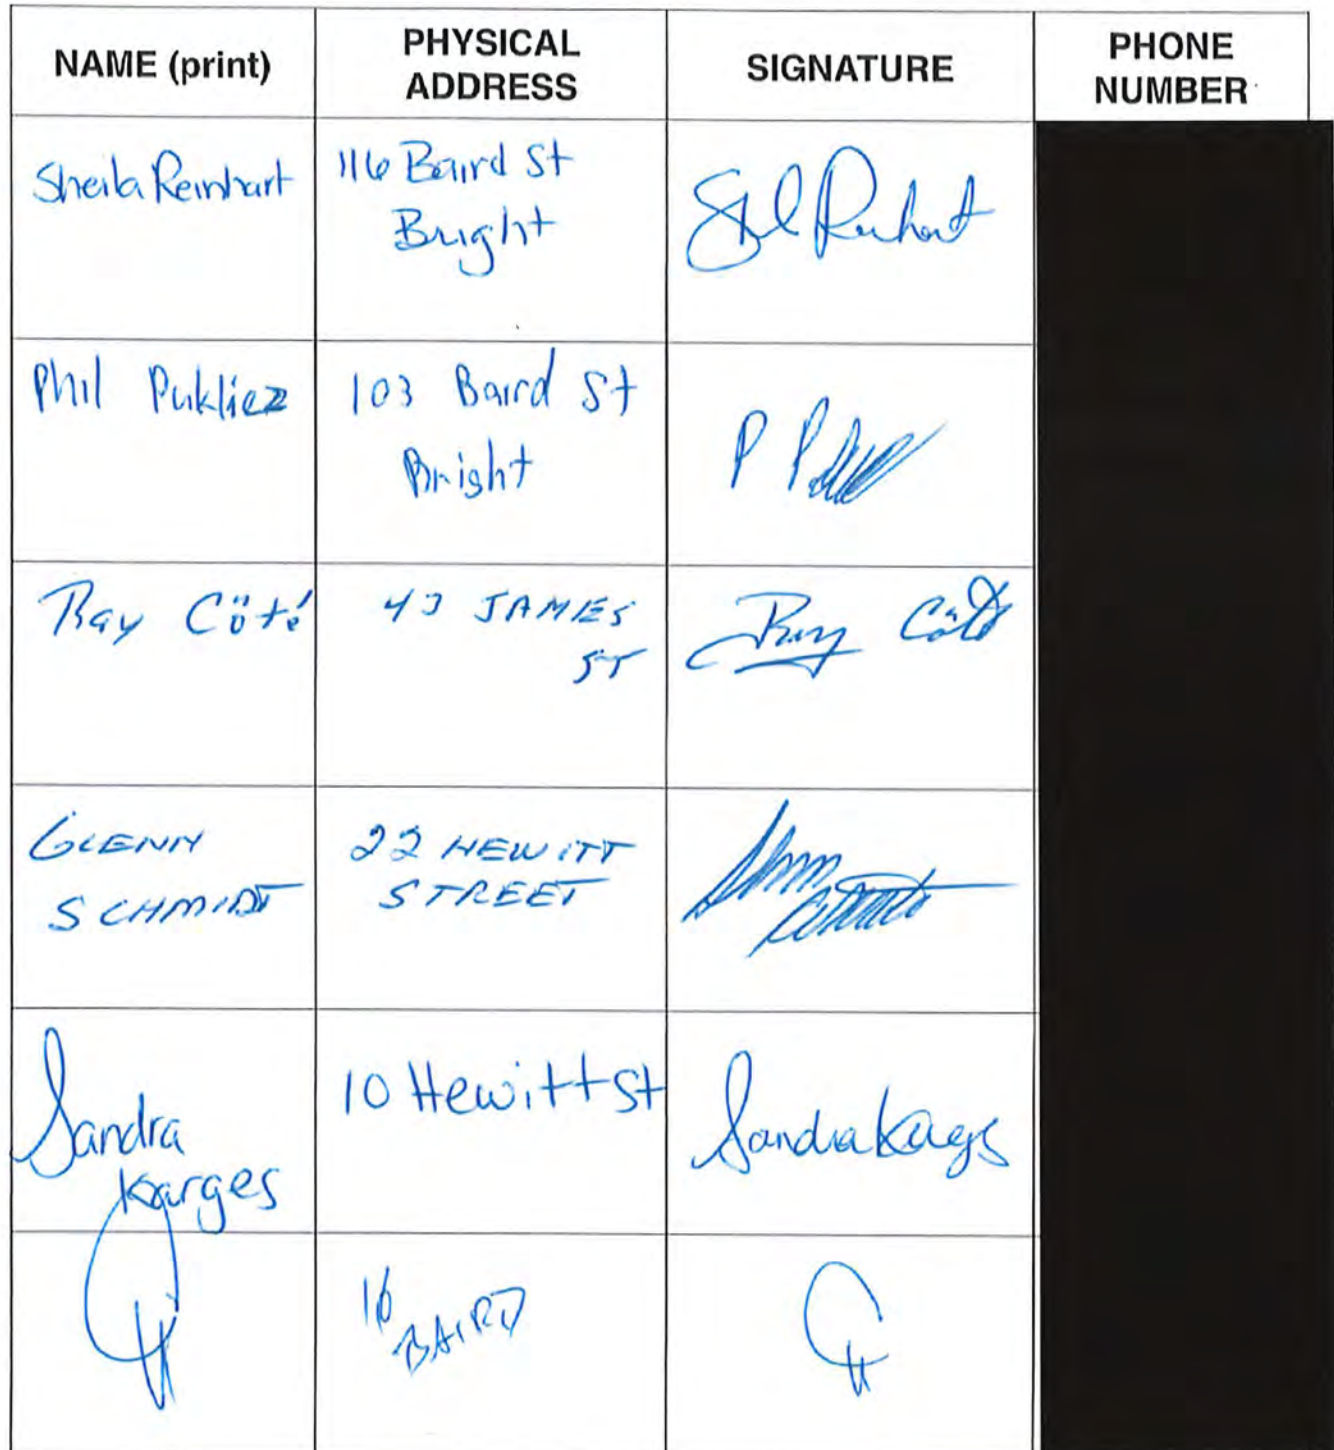 NAME (print)
PHYSICAL
ADDRESS
SIGNATURE
PHONE
NUMBER
Sheila Reinhart
116 Baird St
Bright
Phil Pukliez
103 Baird St
Bright
P
Ray Cöté
43 JAMES
ST
Ray
GLENN
SCHMIDT
22 HEWITT
STREET
Sandra
Karges
10 Hewitt St
Sandra Karges
16
BAIRD